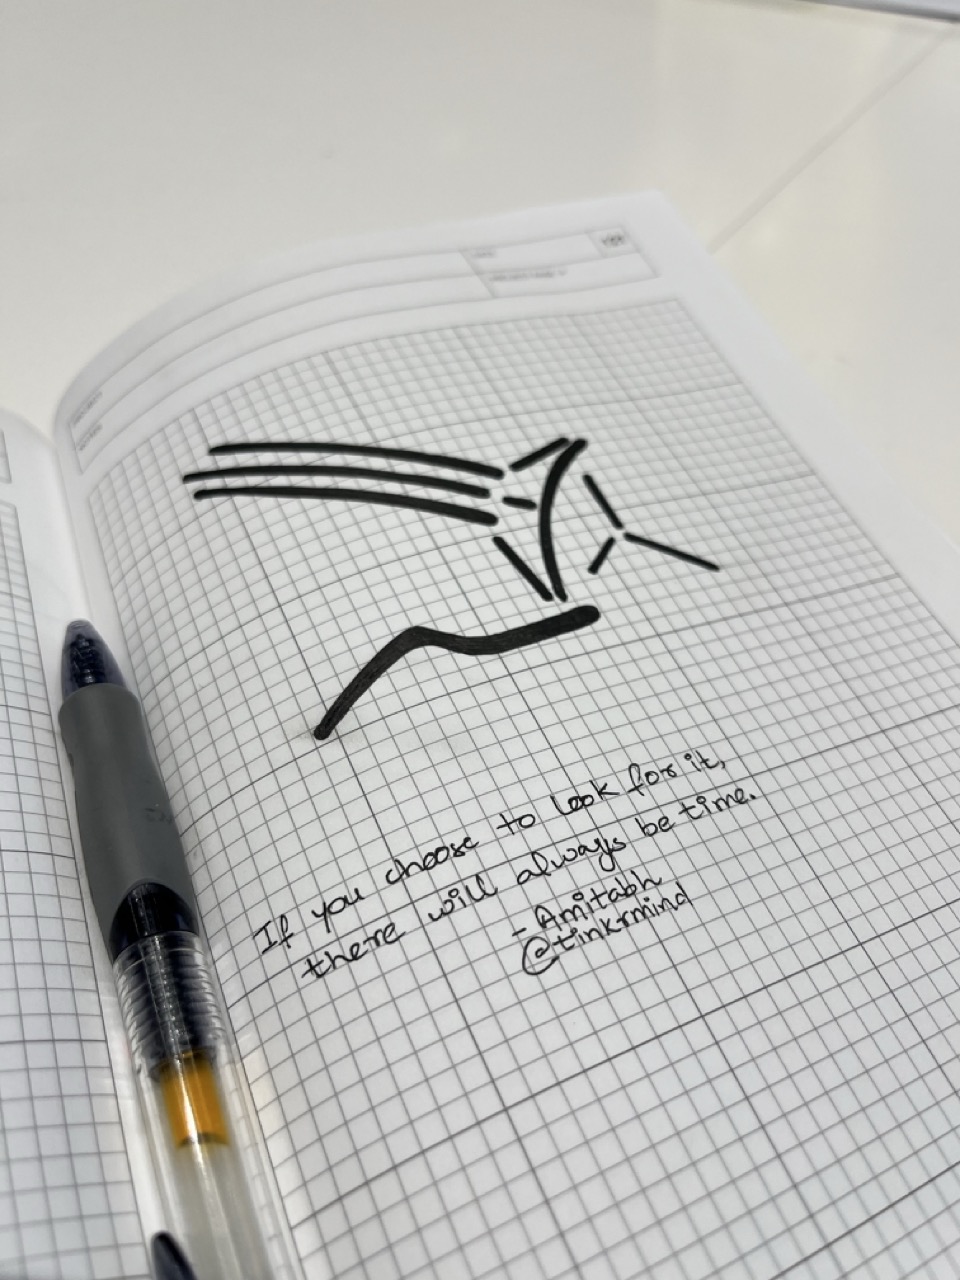 If you choose to look for it,
there will always be time.
- Amitabh
@tinkrmind